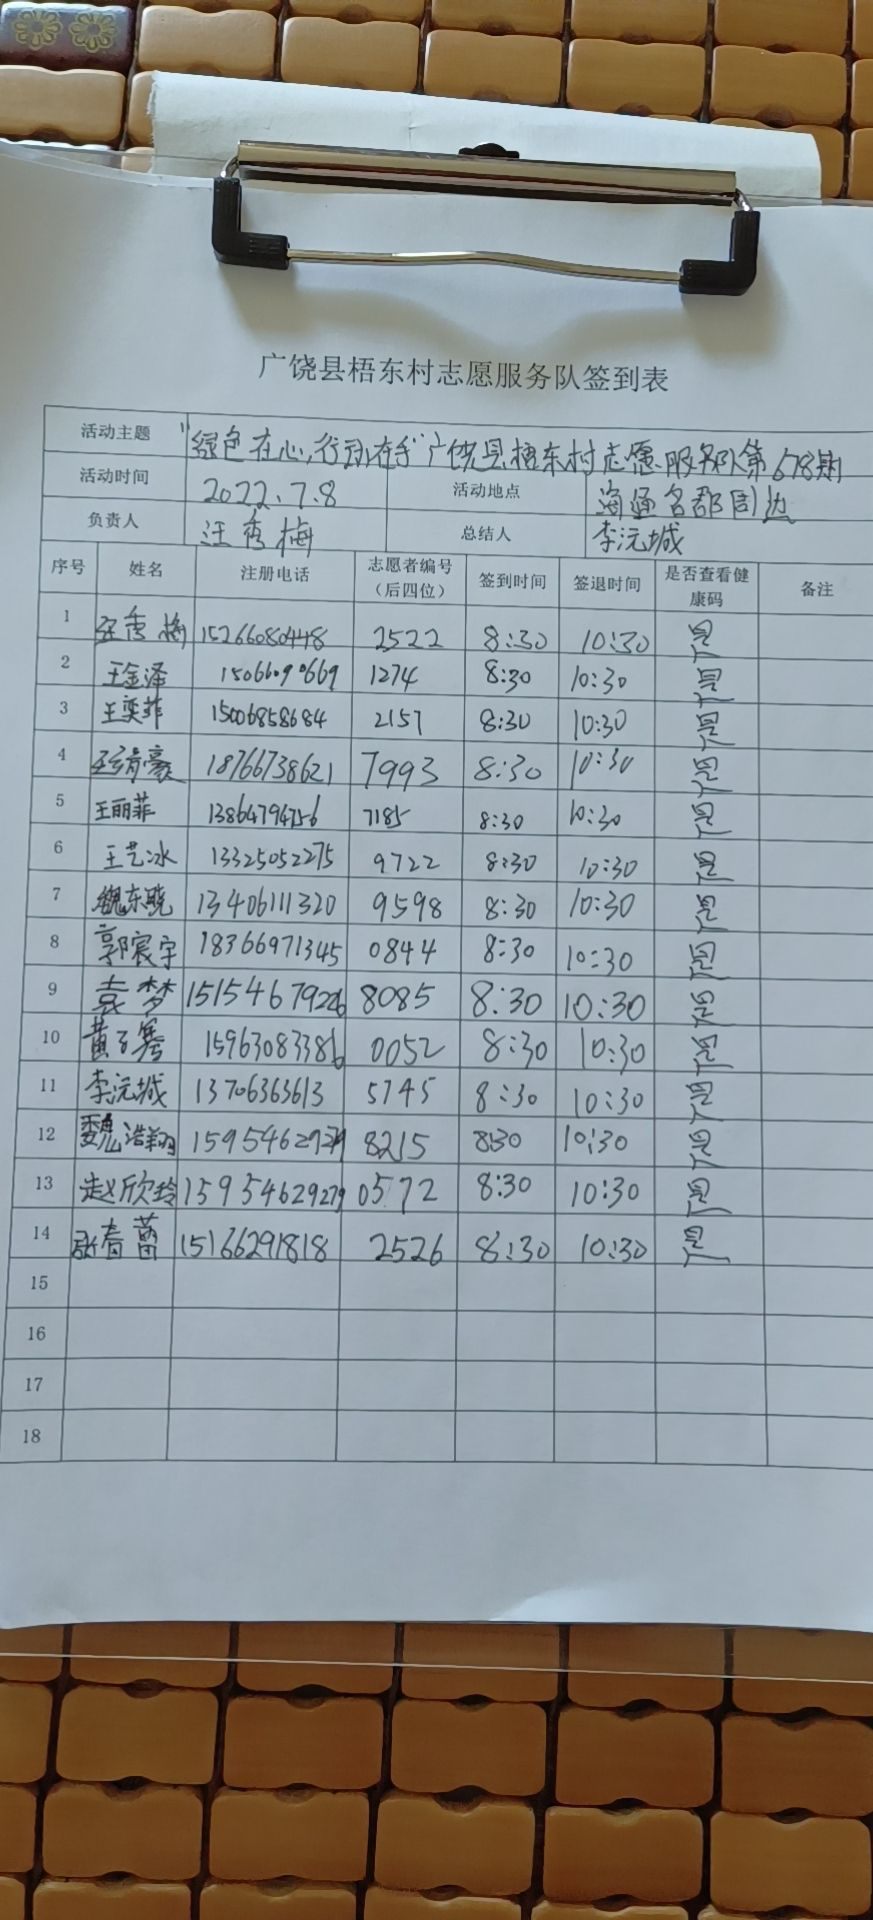 广饶县梧东村志愿服务队签到表
活动主题 "绿色在心,行动在手"广饶县梧东村志愿服务队第678期
活动时间 2022.7.8 活动地点 海通名郡周边
负责人 汪秀梅 总结人 李沅城
序号 姓名 注册电话 志愿者编号（后四位） 签到时间 签退时间 是否查看健康码 备注
1 汪秀梅 15266080448 2522 8:30 10:30 是
2 王金泽 15066090669 1274 8:30 10:30 是
3 王奕菲 15006858684 2157 8:30 10:30 是
4 18766738621 7993 8:30 10:30 是
5 王丽菲 13864794756 7185 8:30 10:30 是
6 王艺冰 13325052275 9722 8:30 10:30 是
7 魏东晓 13406111320 9598 8:30 10:30 是
8 郭宸宇 18366971345 0844 8:30 10:30 是
9 袁梦 15154679226 8085 8:30 10:30 是
10 黄子骞 15963083386 0052 8:30 10:30 是
11 李沅城 13706363613 5745 8:30 10:30 是
12 魏浩翔 15954629279 8215 8:30 10:30 是
13 赵欣玲 15954629279 0572 8:30 10:30 是
14 张春蕾 15166291818 2526 8:30 10:30 是
15
16
17
18